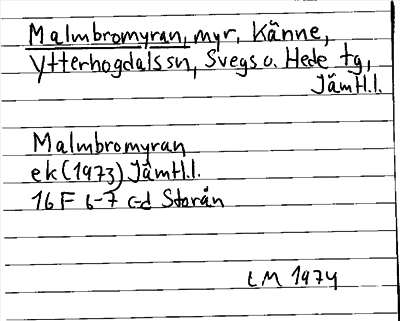 Malmbromyran, myr, Känne,
Ytterhogdals sn, Svegs o. Hede tg,
Jämtl.l.
Malmbromyran
ek (1973) Jämtl.l.
16 F 6-7 c-d Storån
LM 1974